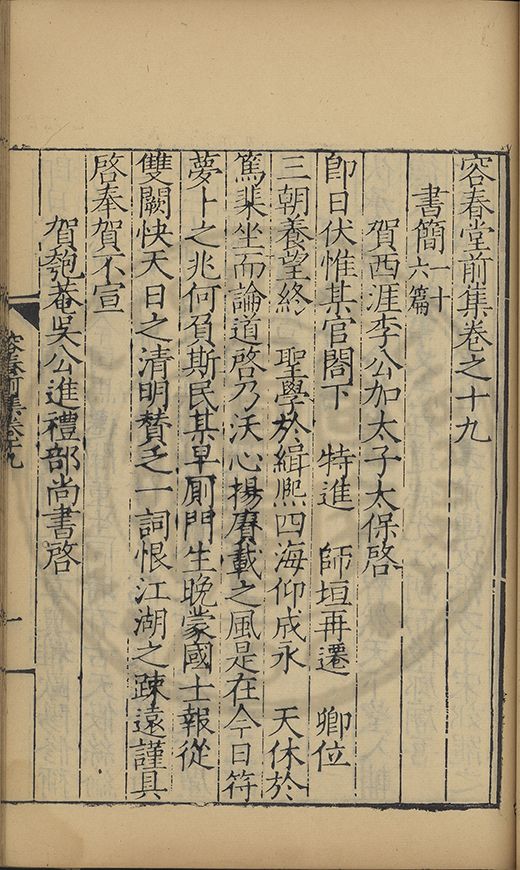 容春堂前集卷之十九
書簡一十六篇
賀西涯李公加太子太保啓
卽日伏惟某官閤下 特進 師垣再遷 卿位
三朝養望終 聖學於緝熈四海仰成永 天休於
篤棐坐而論道啓乃沃心揚賡載之風是在今日符
夢卜之兆何負斯民某早厠門生晚蒙國士報從
雙闕快天日之清明賛乏一詞恨江湖之踈遠謹具
啓奉賀不宣
賀匏菴吳公進禮部尚書啓
容春前集卷十九
一